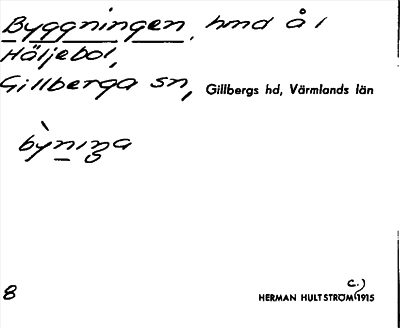 Byggningen, hmd å l
Häljebol,
Gillberga sn, Gillbergs hd, Värmlands län
bỳnıŋa
8
c.)
HERMAN HULTSTRÖM 1915